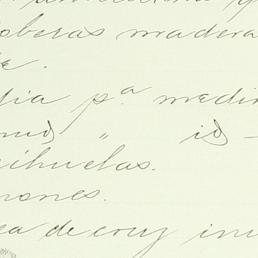 oberas madera
e.
gia pª medir
" id -
ihuelas.
nones.
ea de cruz inu